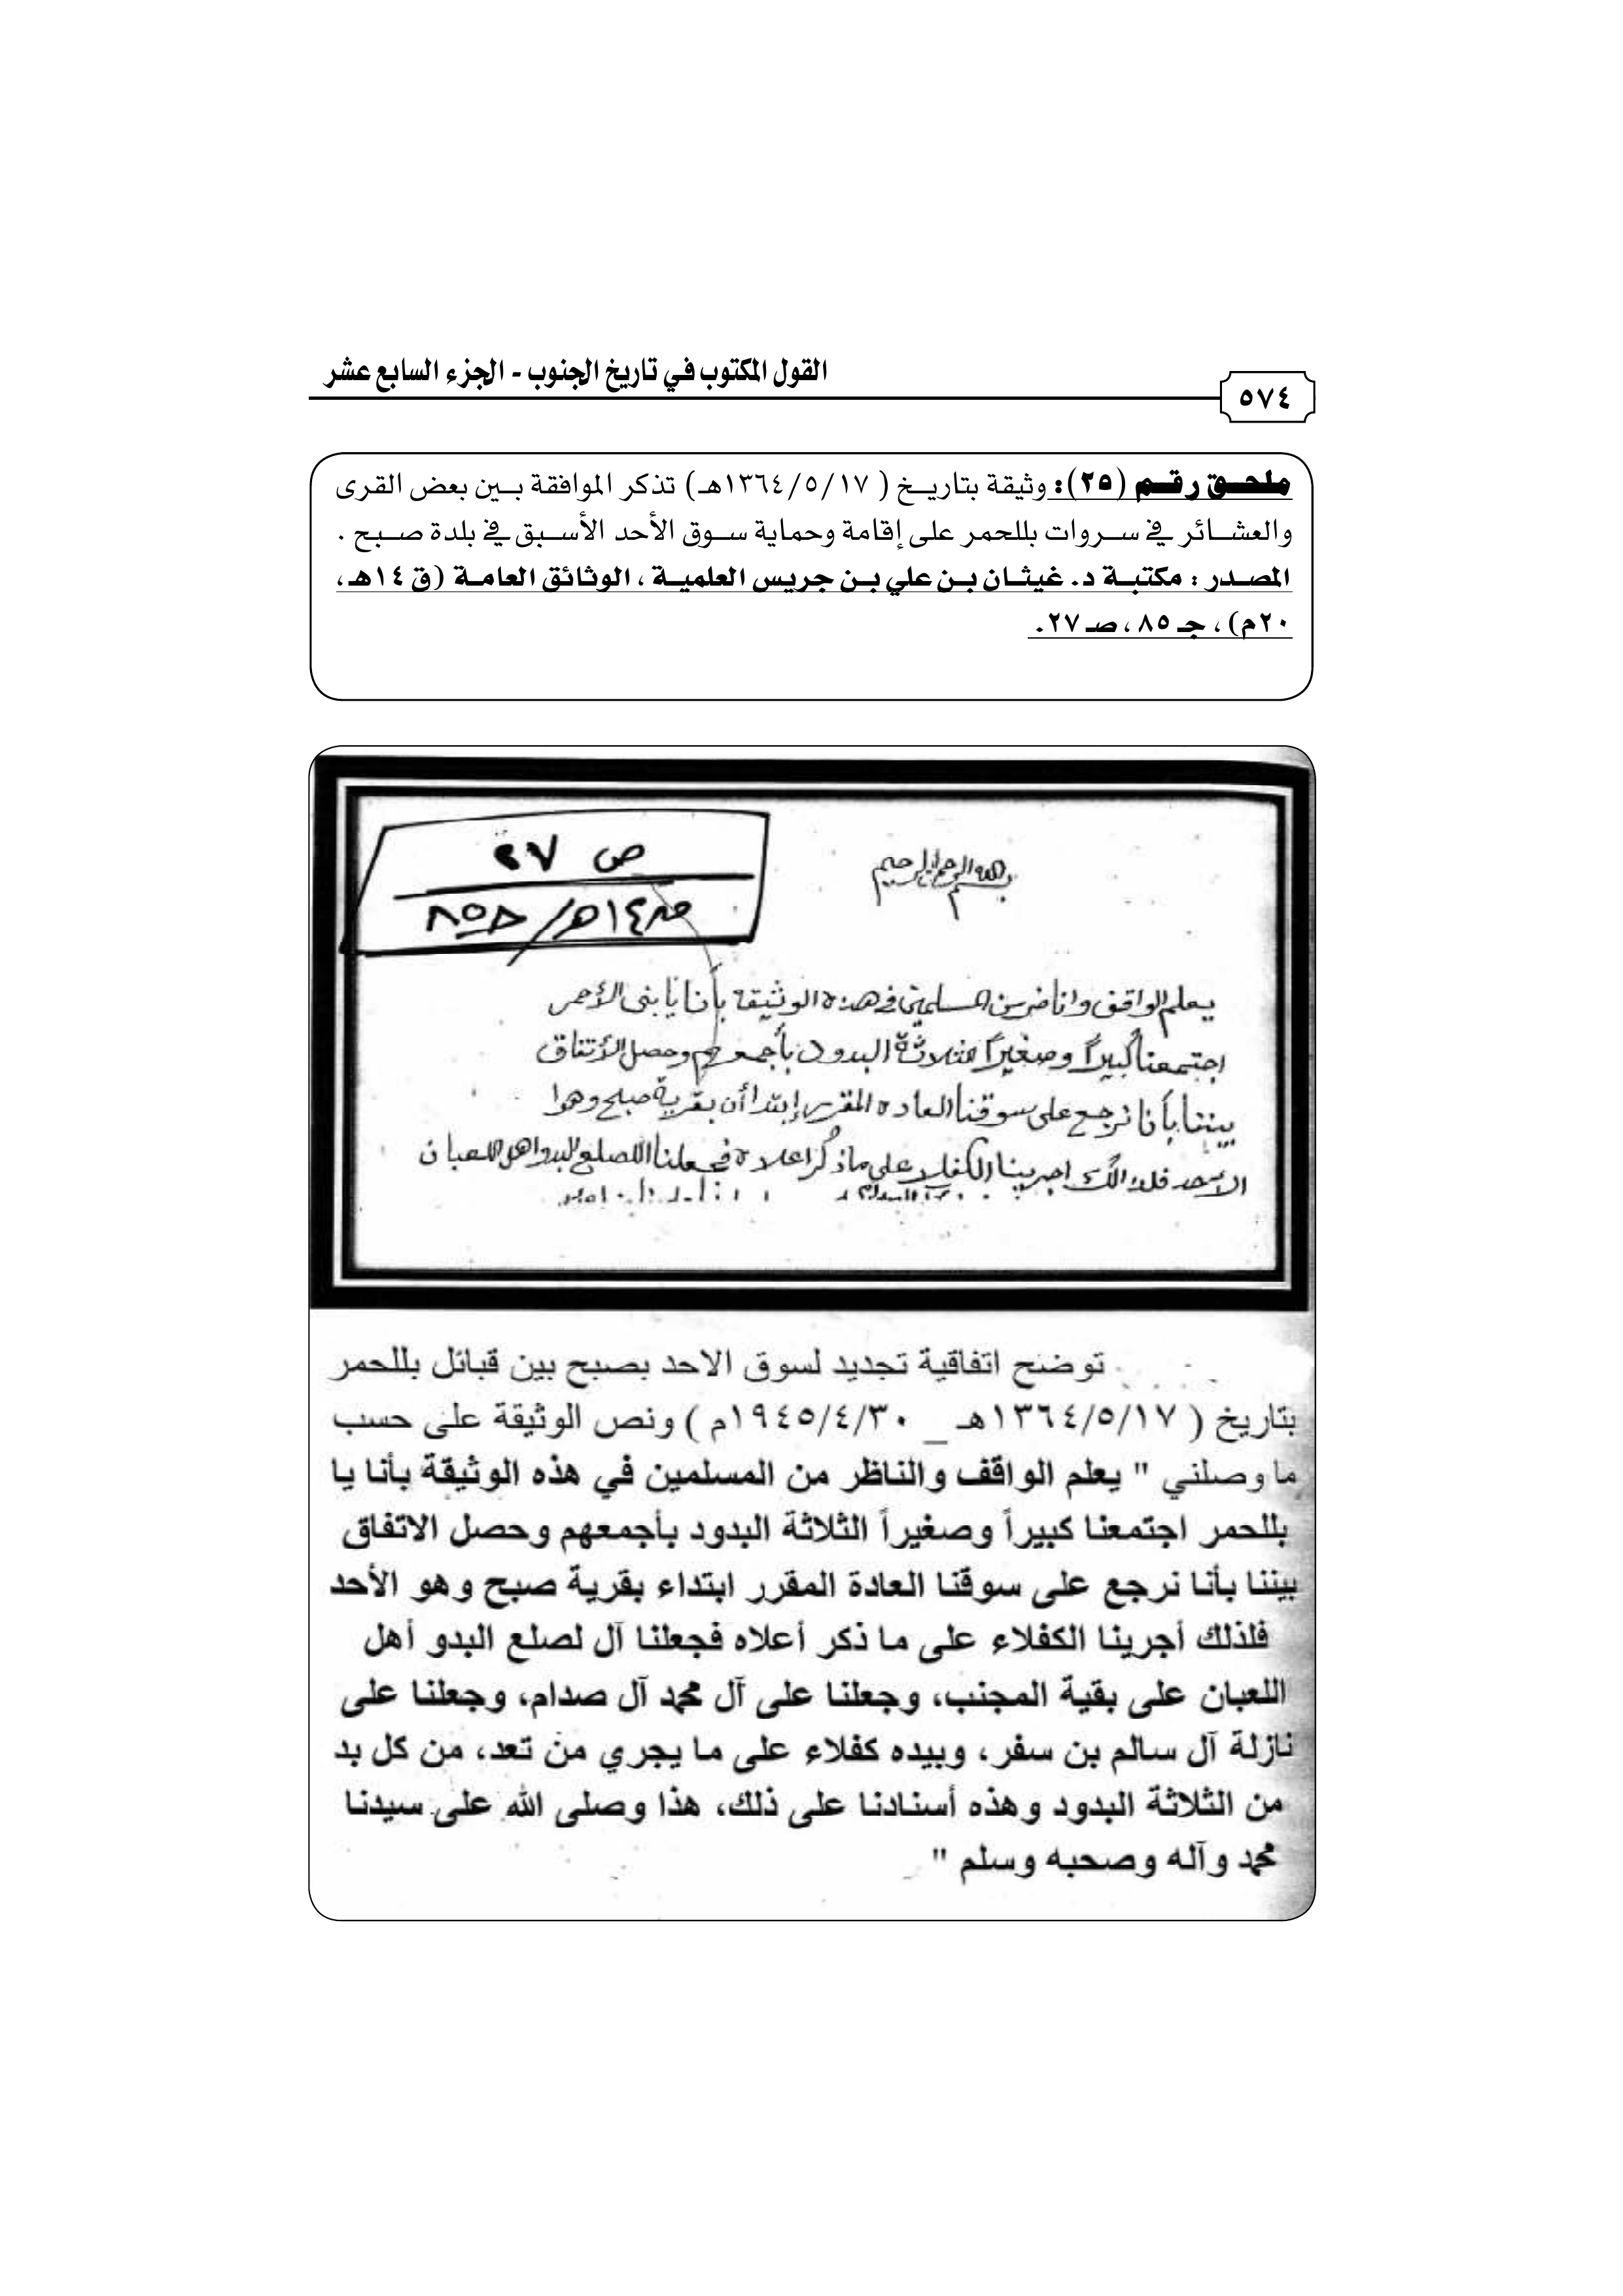 القول المكتوب في تاريخ الجنوب - الجزء السابع عشر
٥٧٤
ملحق رقم (٢٥): وثيقة بتاريخ ( ١٣٦٤/٥/١٧هـ) تذكر الموافقة بين بعض القرى
والعشائر في سروات بللحمر على إقامة وحماية سوق الأحد الأسبق في بلدة صبح .
المصدر : مكتبة د. غيثان بن علي بن جريس العلمية ، الوثائق العامة (ق ١٤هـ،
٢٠م) ، جـ ٨٥ ، صـ ٢٧.
ص ٢٧
بسم الله الرحمن الرحيم
يعلم الواقف والناضر من المسلمين في هذه الوثيقة بأنا يا بني الأحمر
اجتمعنا كبيراً وصغيراً الثلاثة البدود بأجمعهم وحصل الأتفاق
بيننا بأنا نرجع على سوقنا العاده المقرر إبتدأن بقرية صبح وهوا
الاحد فلذالك اجرينا الكفلاء على ماذكر اعلاه فجعلنا اللصلع البدو اهل اللعبان
توضح اتفاقية تجديد لسوق الاحد بصبح بين قبائل بللحمر
بتاريخ ( ١٣٦٤/٥/١٧هـ _ ١٩٤٥/٤/٣٠م ) ونص الوثيقة على حسب
ما وصلني " يعلم الواقف والناظر من المسلمين في هذه الوثيقة بأنا يا
بللحمر اجتمعنا كبيراً وصغيراً الثلاثة البدود بأجمعهم وحصل الاتفاق
بيننا بأنا نرجع على سوقنا العادة المقرر ابتداء بقرية صبح وهو الأحد
فلذلك أجرينا الكفلاء على ما ذكر أعلاه فجعلنا آل لصلع البدو أهل
اللعبان على بقية المجنب، وجعلنا على آل محمد آل صدام، وجعلنا على
نازلة آل سالم بن سفر، وبيده كفلاء على ما يجري من تعد، من كل بد
من الثلاثة البدود وهذه أسنادنا على ذلك، هذا وصلى الله على سيدنا
محمد وآله وصحبه وسلم "